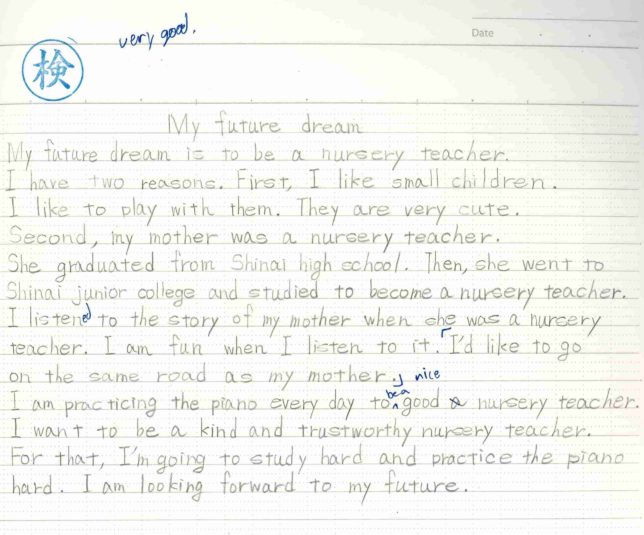 very good.
Date
検
My future dream
My future dream is to be a nursery teacher.
I have two reasons. First, I like small children.
I like to play with them. They are very cute.
Second, my mother was a nursery teacher.
She graduated from Shinai high school. Then, she went to
Shinai junior college and studied to become a nursery teacher.
I listened to the story of my mother when she was a nursery
teacher. I am fun when I listen to it. I'd like to go
on the same road as my mother. nice
I am practicing the piano every day to be a good nursery teacher.
I want to be a kind and trustworthy nursery teacher.
For that, I'm going to study hard and practice the piano
hard. I am looking forward to my future.